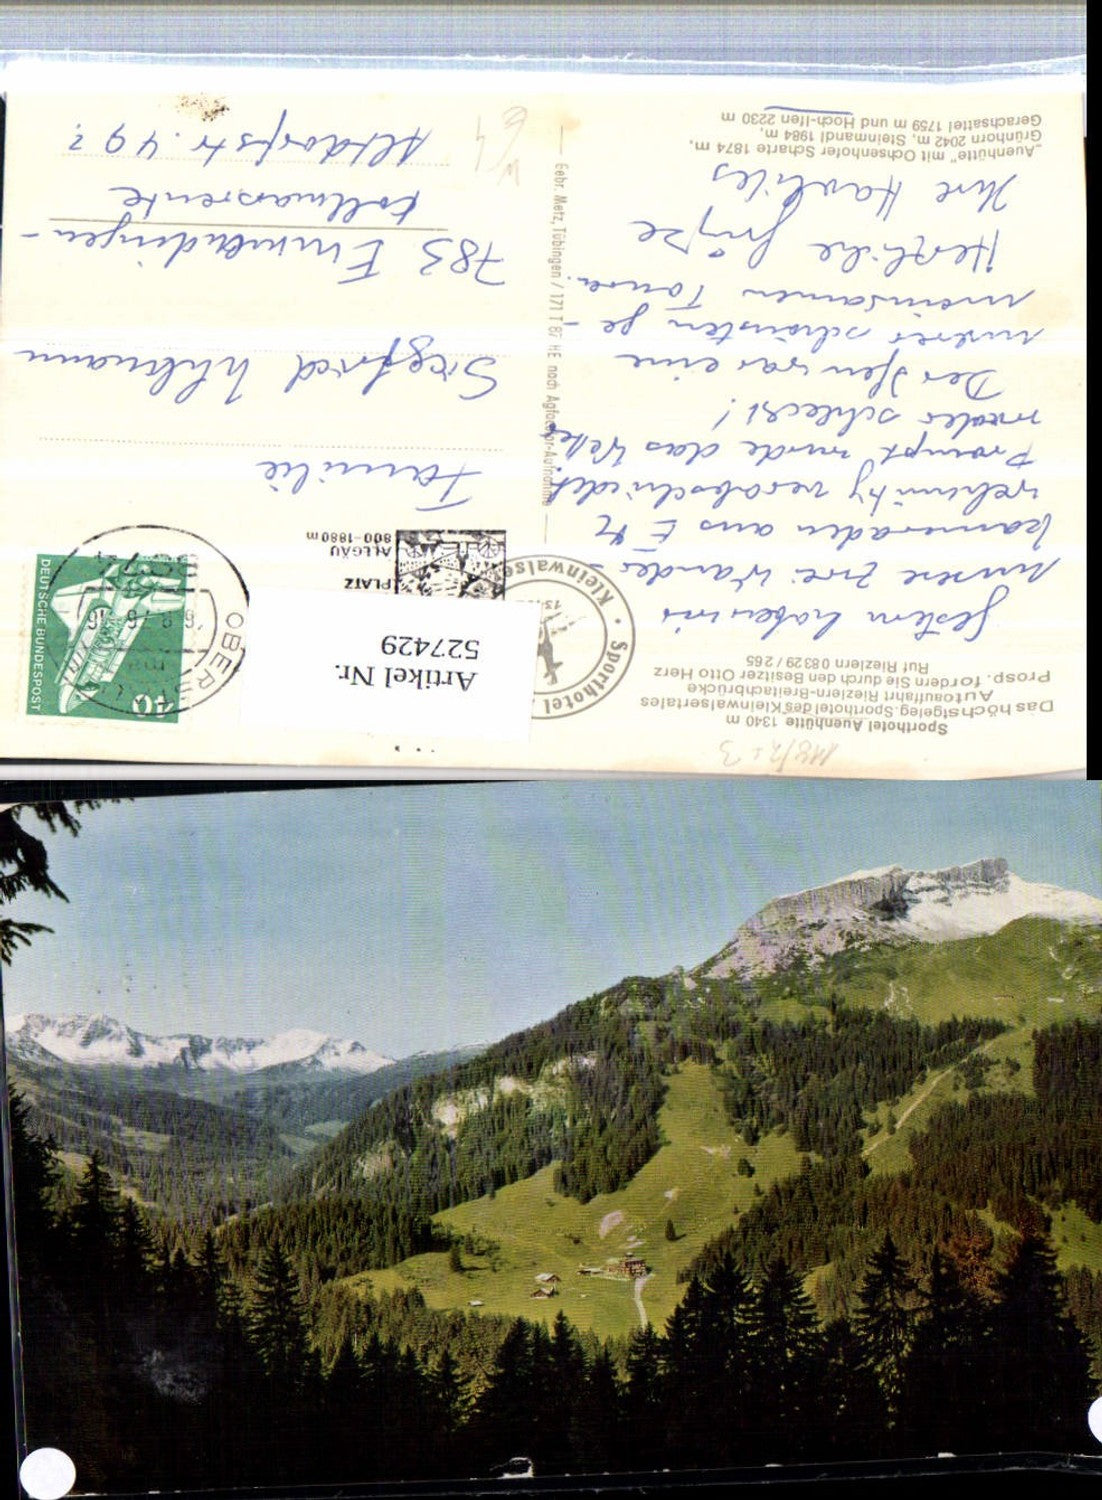 Sporthotel Auenhütte 1340 m
Das höchstgeleg. Sporthotel des Kleinwalsertales
Autoauffahrt Riezlern-Breitachbrücke
Prosp. fordern Sie durch den Besitzer Otto Herz
Ruf Riezlern 08329/265
Gestern haben wir
unsere zwei Wander-
kameraden aus
wehmütig verabschiedet
Prompt wurde das Wetter
wieder schlecht!
Der Ifen war eine
unserer schönsten ge-
meinsamen Touren.
Herzliche Grüße
Ihre
„Auenhütte" mit Ochsenhofer Scharte 1874 m,
Grünhorn 2042 m, Steinmandl 1984 m,
Gerachsattel 1759 m und Hoch-Ifen 2230 m
Gebr. Metz, Tübingen / 171 T 87 HE nach Agfacolor-Aufnahme
Sporthotel
Kleinwalse
Artikel Nr.
527429
PLATZ
ALLGÄU
800-1880m
DEUTSCHE BUNDESPOST
40
OBERS
Familie
Siegfried Uhlmann
783 Emmendingen-
Kollmarsreute
Altdorfstr. 49?